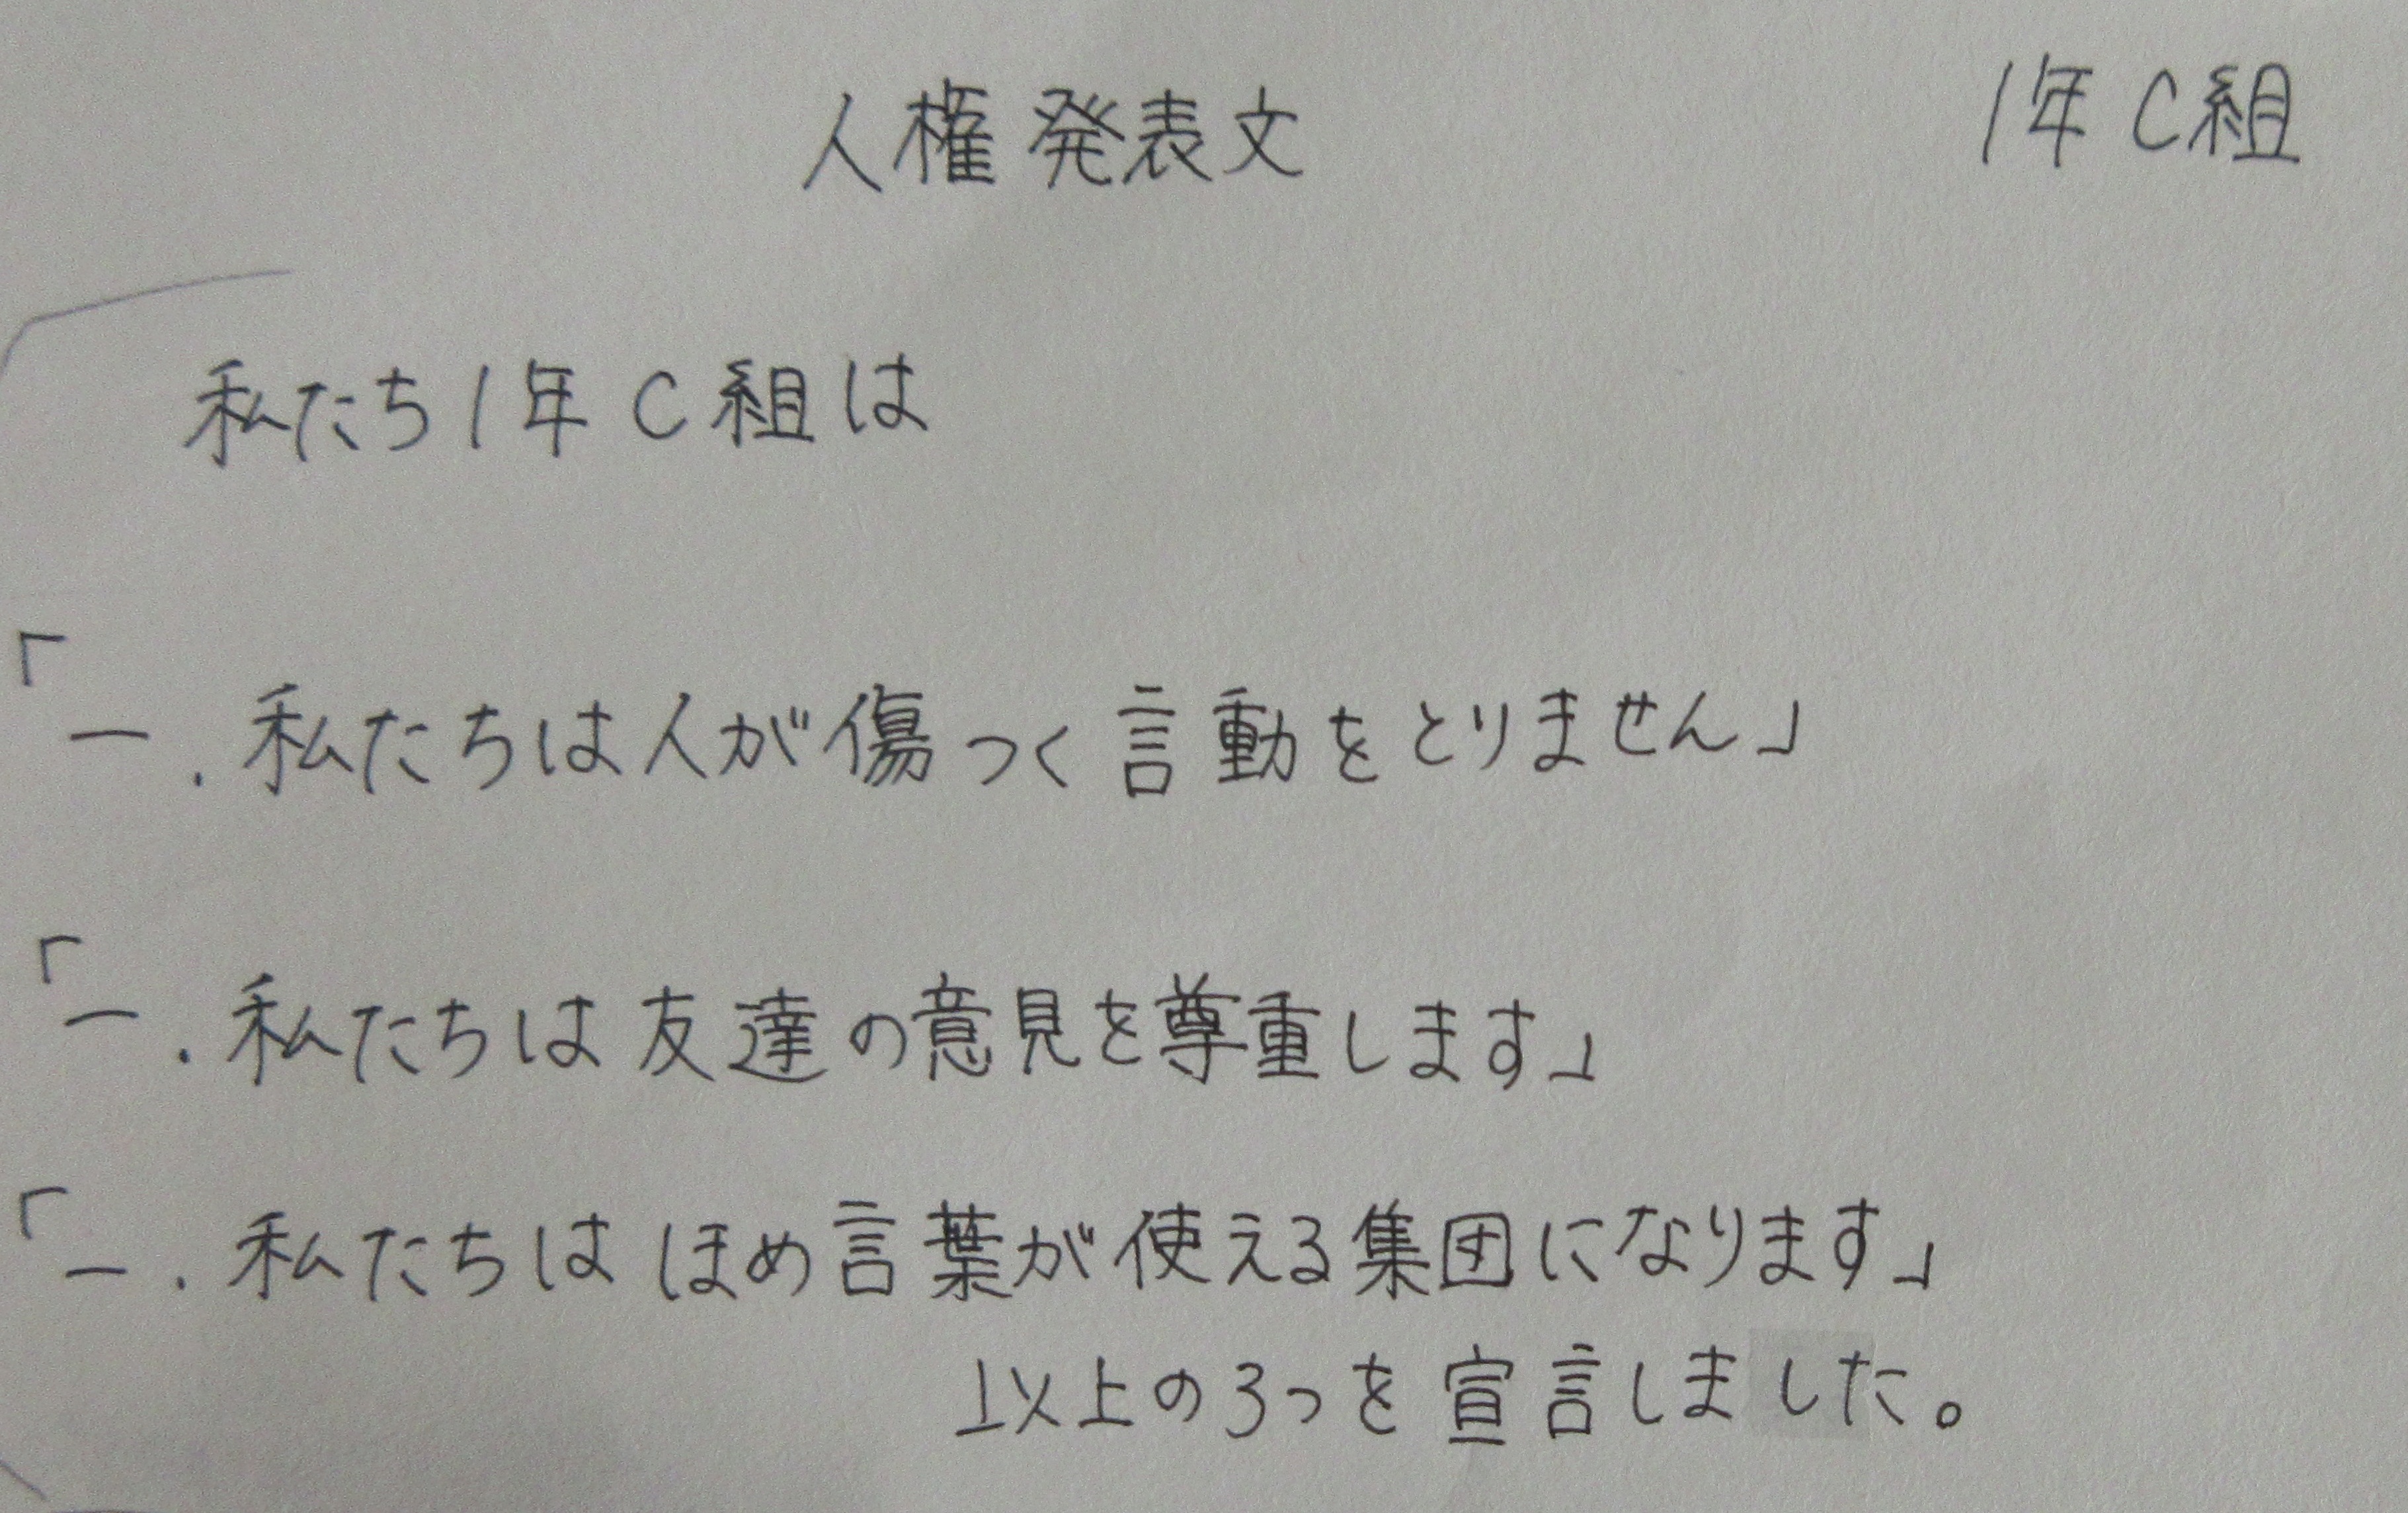 人権発表文 1年C組
私たち1年C組は
「一.私たちは人が傷つく言動をとりません」
「一.私たちは友達の意見を尊重します」
「一.私たちはほめ言葉が使える集団になります」
以上の3つを宣言しました。